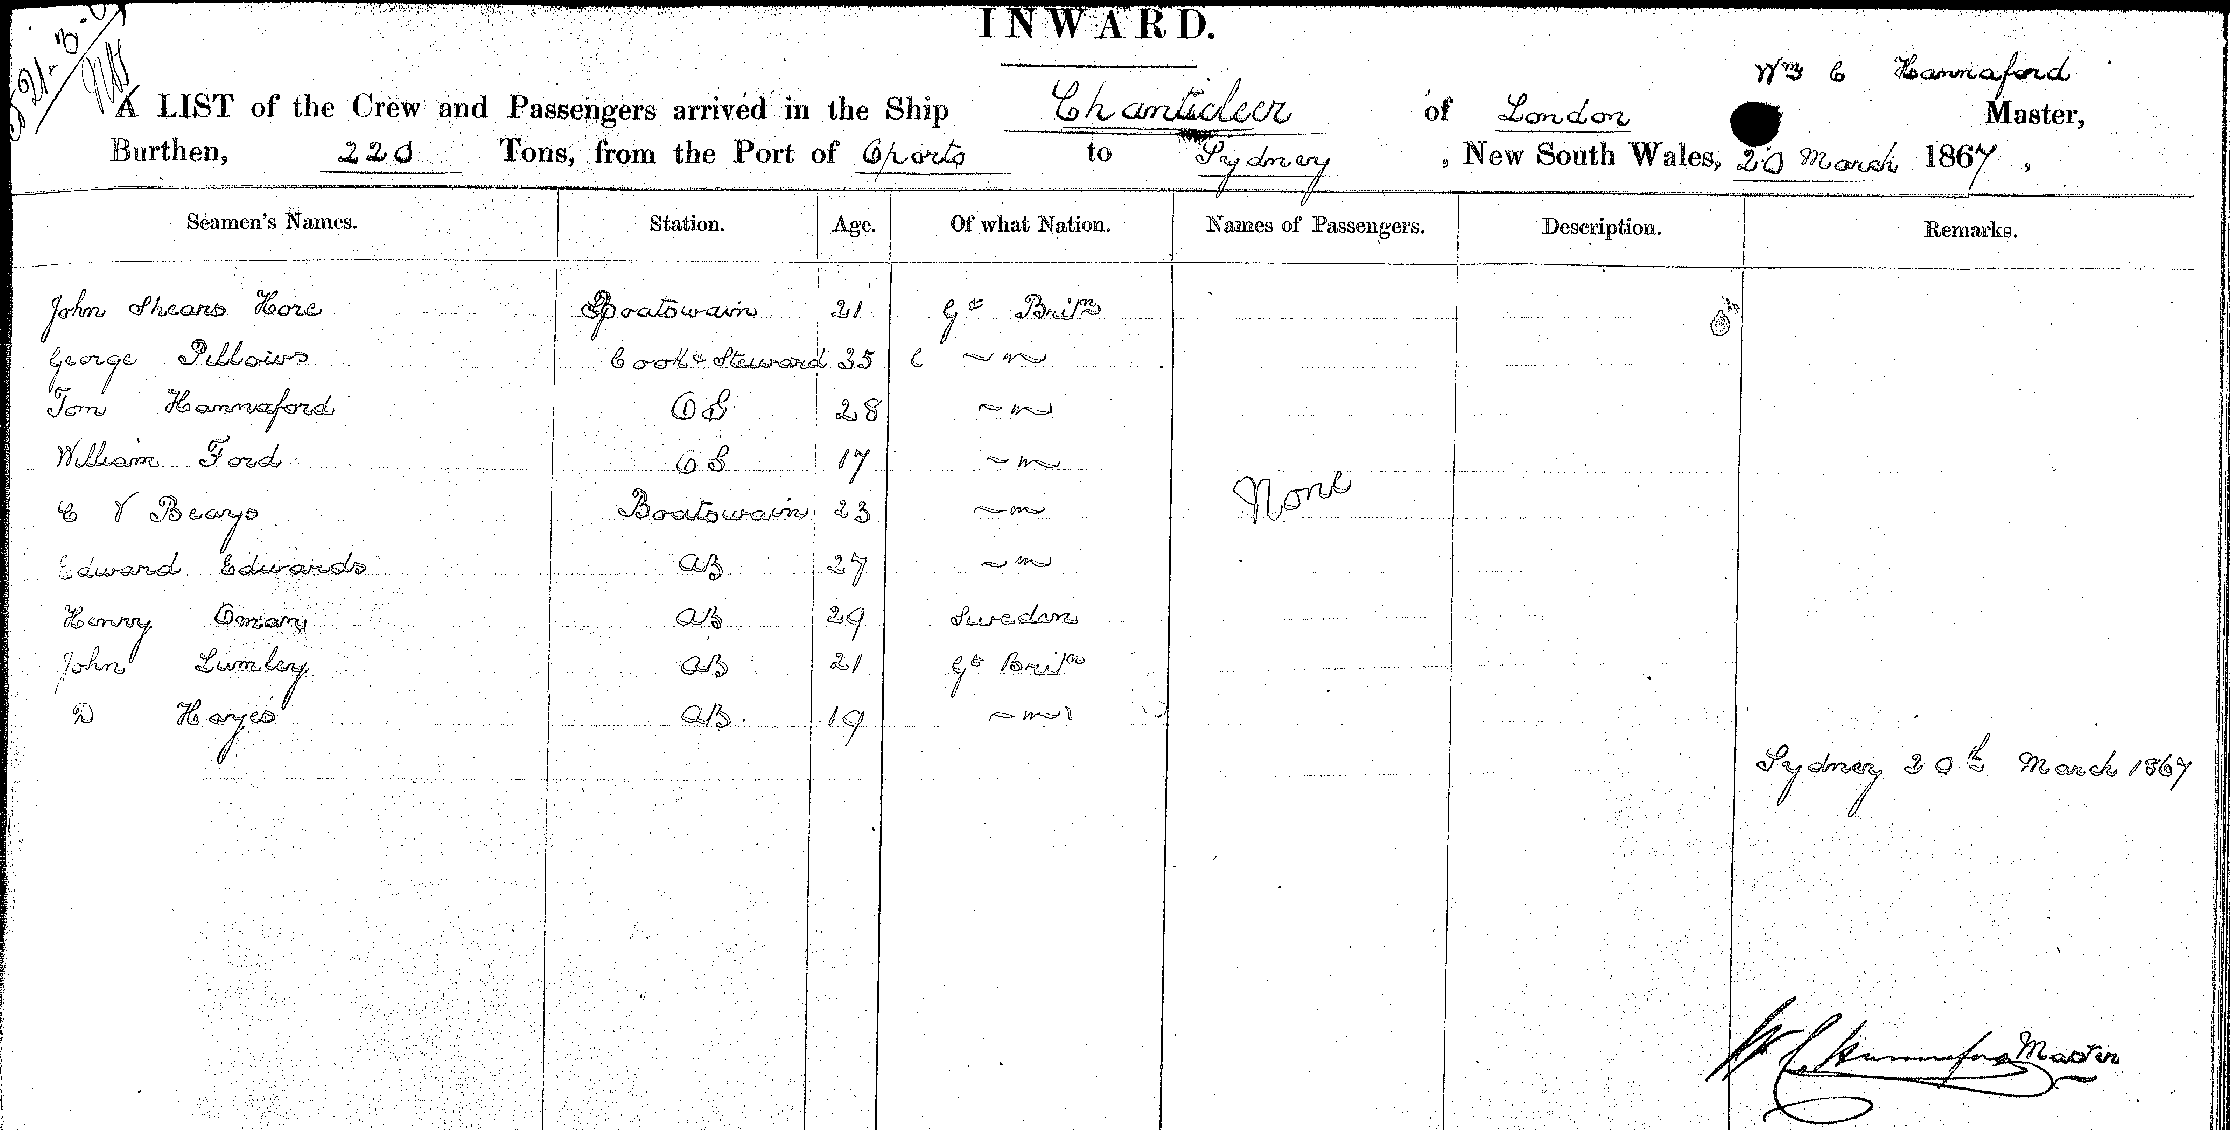 INWARD.
Wm C Hannaford
A LIST of the Crew and Passengers arrived in the Ship Chanticleer of London Master,
Burthen, 220 Tons, from the Port of Oporto to Sydney , New South Wales, 20 March 1867 ,
Seamen's Names. Station. Age. Of what Nation. Names of Passengers. Description. Remarks.
John Shears Hore Boatswain 21 Gt Britn
George Pillows Cook & Steward 35
Tom Hannaford OS 28
William Ford OS 17
None
C V Beays Boatswain 23
Edward Edwards AB 27
Henry Omany AB 29 Swedan
John Lumley AB 21 Gt Britn
D Hayes AB 19
Sydney 20th March 1867
W C Hannaford Master